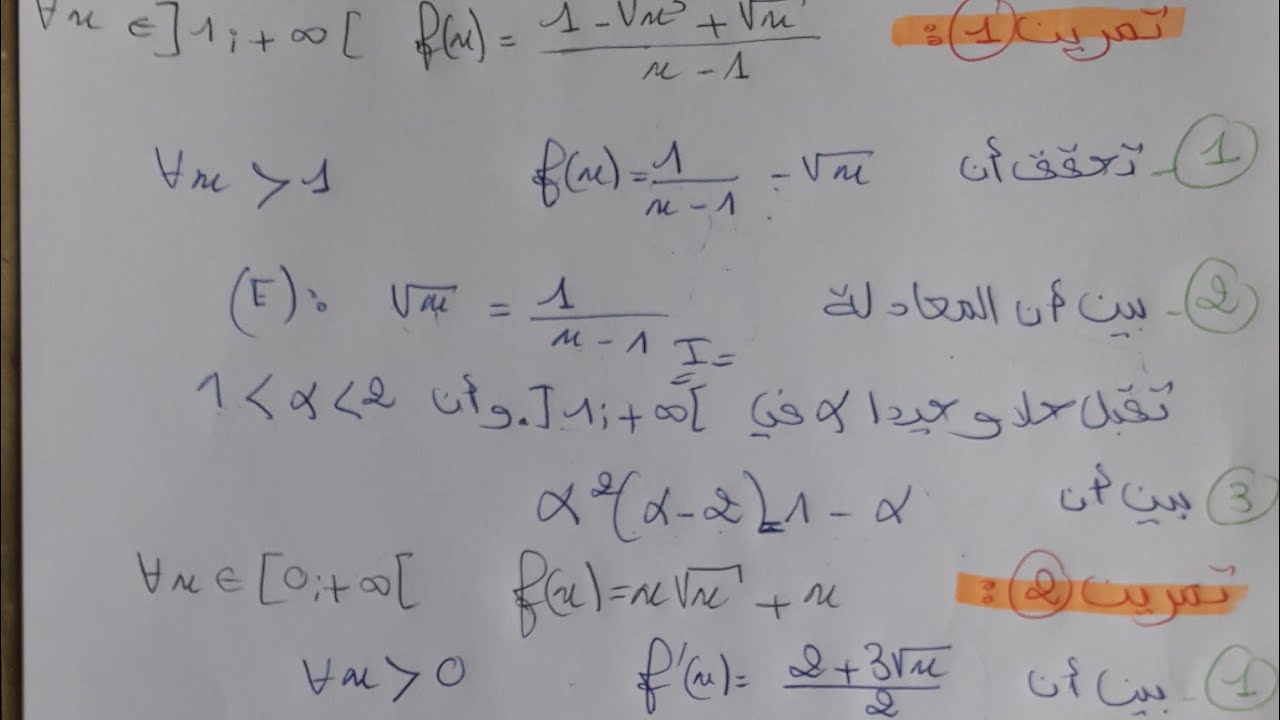 تمرين 1 : f(x) = (1 - √x³ + √x) / (x - 1) ∀x ∈ ]1 ; +∞[
1 - تحقق أن f(x) = 1 / (x - 1) - √x ∀x > 1
2 - بين أن المعادلة (E) : √x = 1 / (x - 1)
تقبل حلا وحيدا α في I = ]1 ; +∞[ . وأن 1 < α < 2
3 بين أن α²(α - 2) = 1 - α
تمرين 2 : f(x) = x√x + x ∀x ∈ [0 ; +∞[
1 - بين أن f'(x) = (2 + 3√x) / 2 ∀x > 0